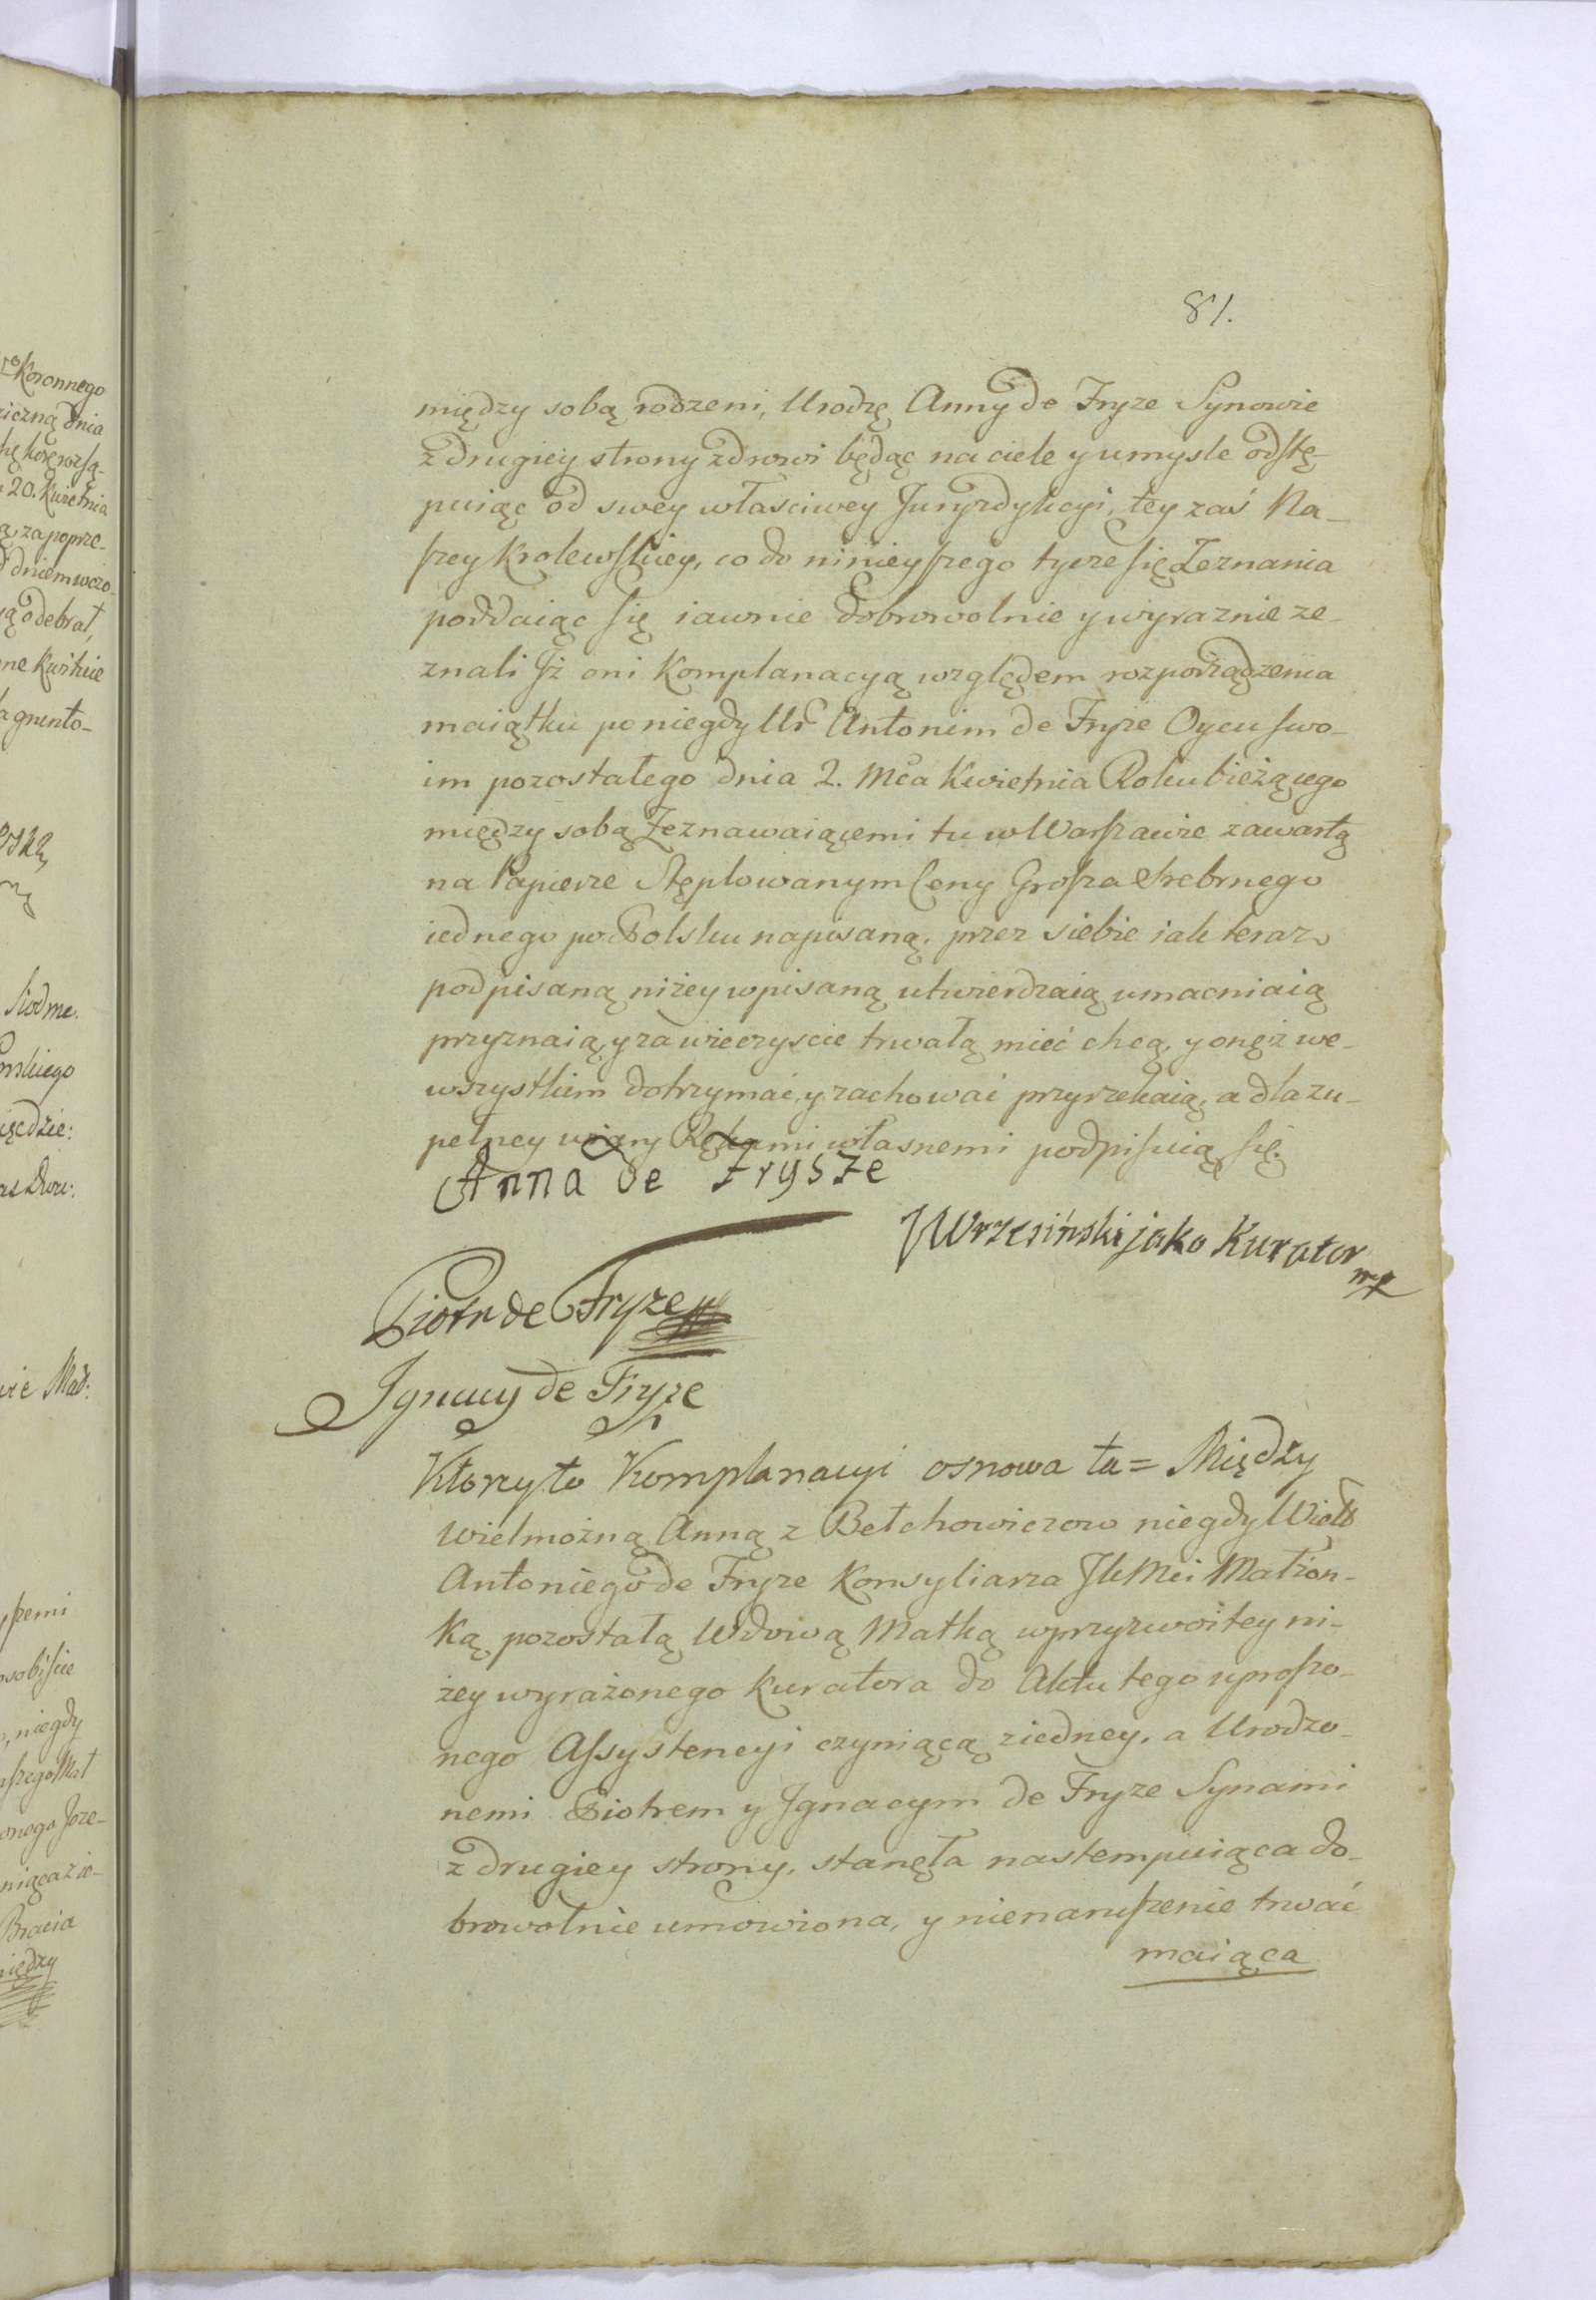 81.
między sobą rodzeni, Urodzę Anny de Fryze Synowie
z drugiey strony zdrowi będąc na ciele y umysle odstę-
puiąc od swey własciwey Juryzdykcyi, tey zaś Na-
szey Krolewskiey, co do ninieyszego tycze się Zeznania
poddaiąc się iawnie dobrowolnie y wyraznie ze-
znali Jż oni Komplanacyą względem rozporządzenia
maiątku po niegdy Ur Antonim de Fryze Oycu swo-
im pozostałego dnia 2. Mca Kwietnia Roku bieżącego
między sobą Zeznawaiącemi tu w Warszawie zawartą
na Papierze Stęplowanym Ceny Grosza Srebrnego
iednego po Polsku napisaną, przez siebie iak teraz
podpisaną niżey wpisaną utwierdzaią umacniaią
przyznaią, y za wieczyscie trwałą mieć chcą, y onęż we-
wszystkim dotrzymać, y zachować przyrzekaią, a dla zu-
pełney wiary Rękami własnemi podpisuią się.
Anna de Frysze
Wrzesiński jako Kurator
mp
Piotr de Fryze
Ignacy de Fryze
Ktorey to Komplanacyi osnowa ta = Między
Wielmożną Anną z Bełchowiczow niegdy Wielo
Antoniego de Fryze Konsyliarza JKMci Małżon-
ką pozostałą Wdową Matką w przyzwoitey ni-
żey wyrażonego Kuratora do Aktu tego uproszo-
nego Assystencyi czyniącą z iedney, a Urodzo-
nemi Piotrem y Ignacym de Fryze Synami
z drugiey strony, stanęła nastempuiąca do-
browolnie umowiona, y nienaruszenie trwać
maiąca